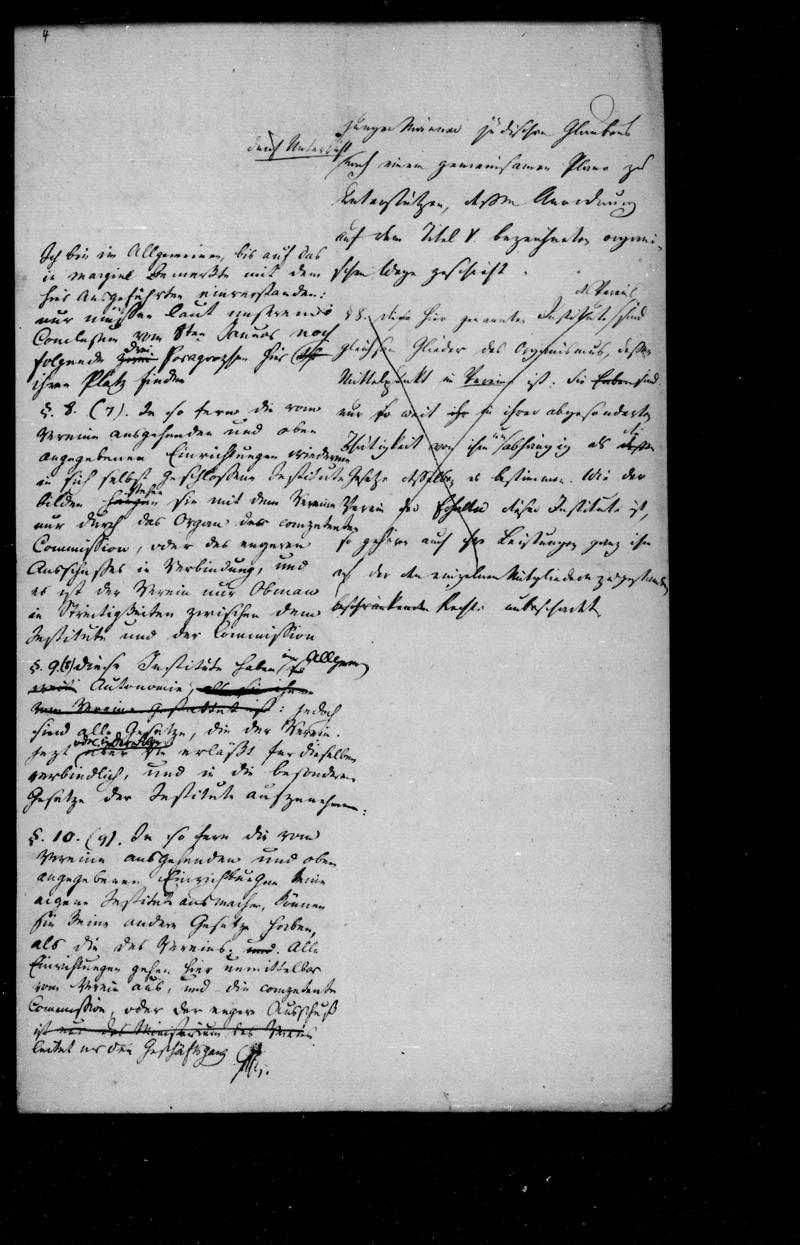 4
junger Männer jüdischen Glaubens
durch Unterricht
nach einem gemeinsamen Plane zu
unterstützen, dessen Anordnung
auf dem Titel V bezeichneten organi-
schen Wege geschieht.
§ 8. diese hier genannten Institute sind
des Vereins
gleichsam Glieder des Organismus, dessen
Mittelpunkt der Verein ist. Sie haben sind
nur so weit ihr in ihrer abgesonderten
Thätigkeit von ihm unabhängig als die
Gesetze desselben es bestimmen. Wie der
Verein der Erhalter dieser Institute ist,
so gehören auch ihre Leistungen ganz ihm
an, der den einzelnen Mitgliedern zugestandenen
beschränkenden Rechte unbeschadet
Ich bin im Allgemeinen, bis auf das
in margine Bemerkte mit dem
hier Ausgeführten einverstanden:
nur müssen laut unsrem
Conclusum vom 8ten Januar noch
folgende drei Paragraphen hier
ihren Platz finden
§. 8. (7). In so fern die vom
Vereine ausgehenden und oben
angegebenen Einrichtungen wiederum
in sich selbst geschlossene Institute
bilden stehen sie mit dem Vereine
nur durch das Organ der competenten
Commission, oder des engeren
Ausschusses in Verbindung, und
es ist der Verein nur Obmann
in Streitigkeiten zwischen dem
Institute und der Commission
§. 9. (8) diese Institute haben im Allgemeinen
Autonomie, als sie ihnen
vom Vereine gestattet ist: jedoch
sind alle Gesetze, die der Verein
jezt oder in der Folge erläßt für dieselben
verbindlich, und in die besonderen
Gesetze der Institute aufzunehmen.
§. 10. (9). In so fern die vom
Vereine ausgehenden und oben
angegebenen Einrichtungen keine
eigene Institute ausmachen, können
sie keine andere Gesetze haben,
als die des Vereins. und. Alle
Einrichtungen gehen hier unmittelbar
vom Verein aus, und die competente
Commission, oder der engere Ausschuß
ist nur das Ministerium des Vereins
leitet nur den Geschäftsgang